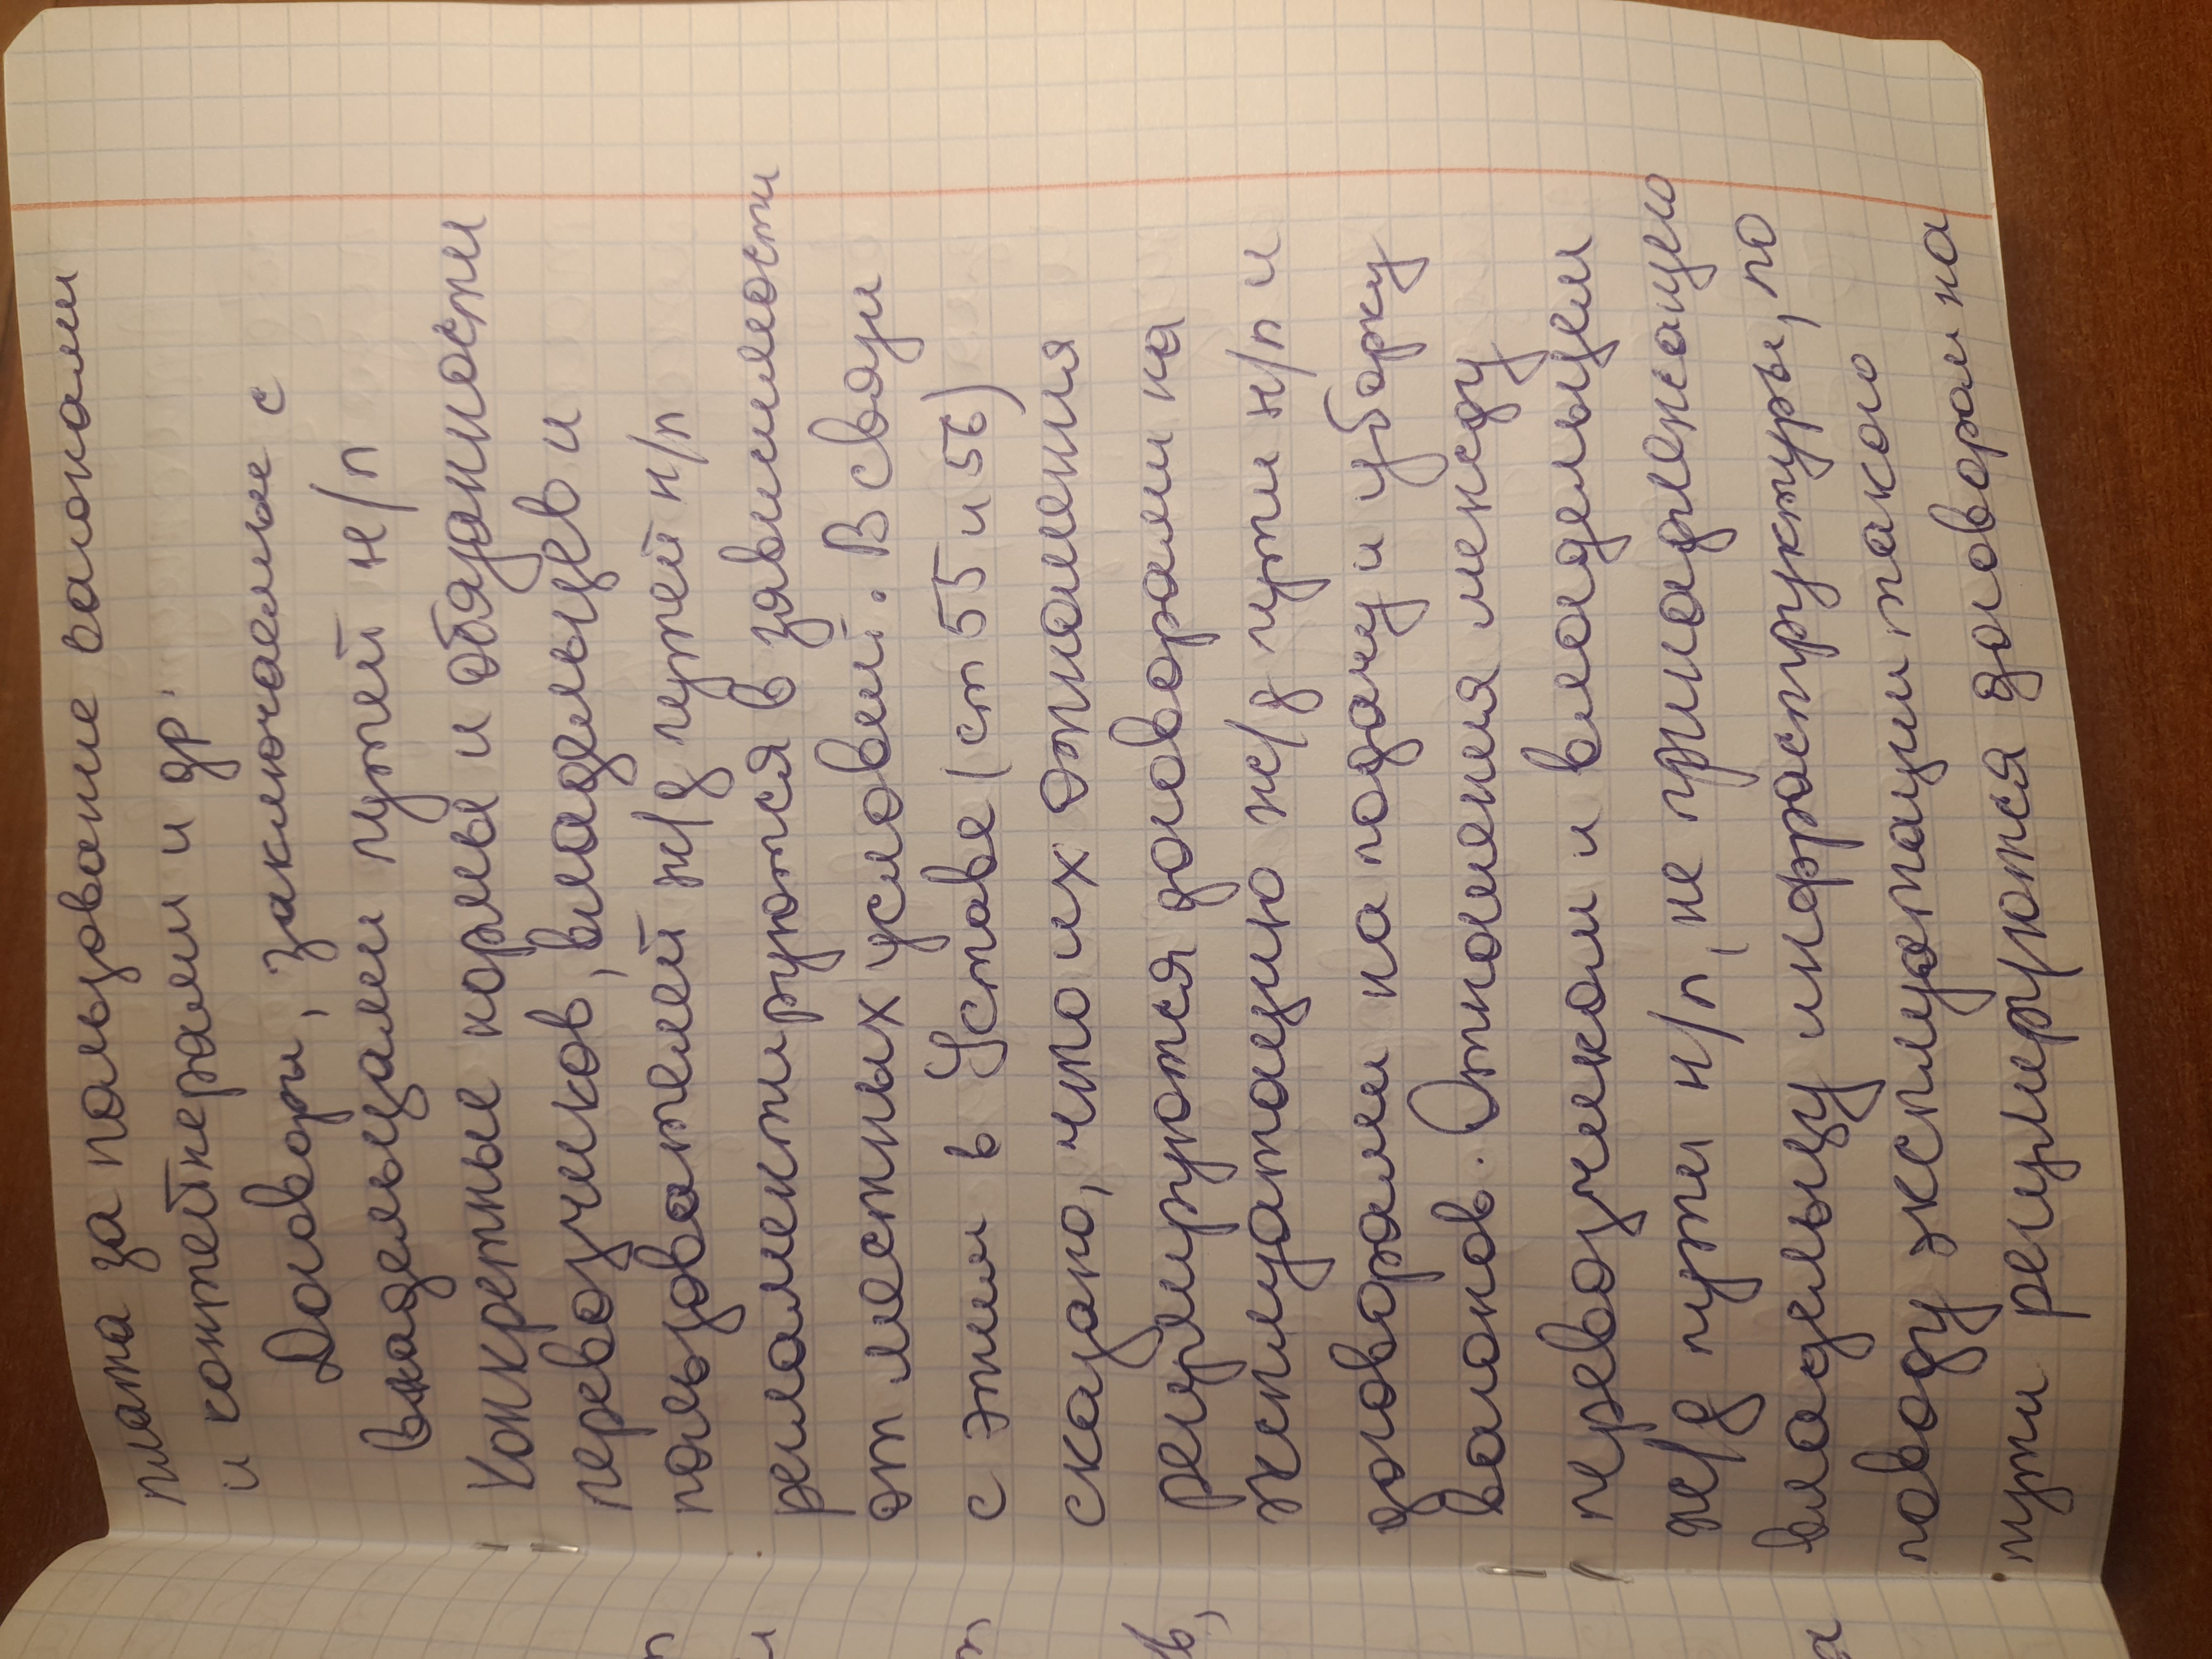 плата за пользование вагонами
и контейнерами и др.
Договоры, заключаемые с
владельцами путей н/п
Конкретные нормы и обязанности
перевозчиков, владельцев и
пользователей ж/д путей н/п
регламентируются в зависимости
от местных условий. В связи
с этим в Уставе (ст 55 и 56)
сказано, что их отношения
регулируются договорами на
эксплуатацию ж/д пути н/п и
договорами на подачу и уборку
вагонов. Отношения между
перевозчиком и владельцем
ж/д пути н/п, не принадлежащего
владельцу инфраструктуры, по
поводу эксплуатации такого
пути регулируются договорами на